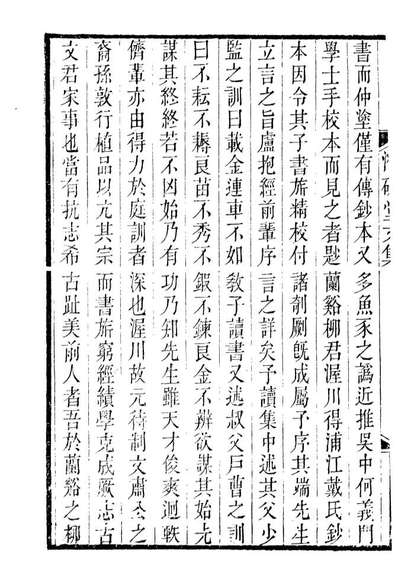 書而仲塗僅有傳鈔本又多魚豕之譌近推吳中何義門
學士手校本而見之者尟蘭谿柳君渥川得浦江戴氏鈔
本因令其子書旂精校付諸剞劂旣成屬予序其端先生
立言之旨盧抱經前輩序言之詳矣予讀集中述其父少
監之訓曰載金連車不如敎子讀書又述叔父戶曹之訓
曰不耘不耨良苗不秀不鍜不鍊良金不辨欲謀其始先
謀其終終若不凶始乃有功乃知先生雖天才俊爽迥軼
儕輩亦由得力於庭訓者深也渥川故元待制文肅公之
裔孫敦行植品以亢其宗而書旂窮經績學克成厥志古
文君家事也當有抗志希古趾美前人者吾於蘭谿之柳